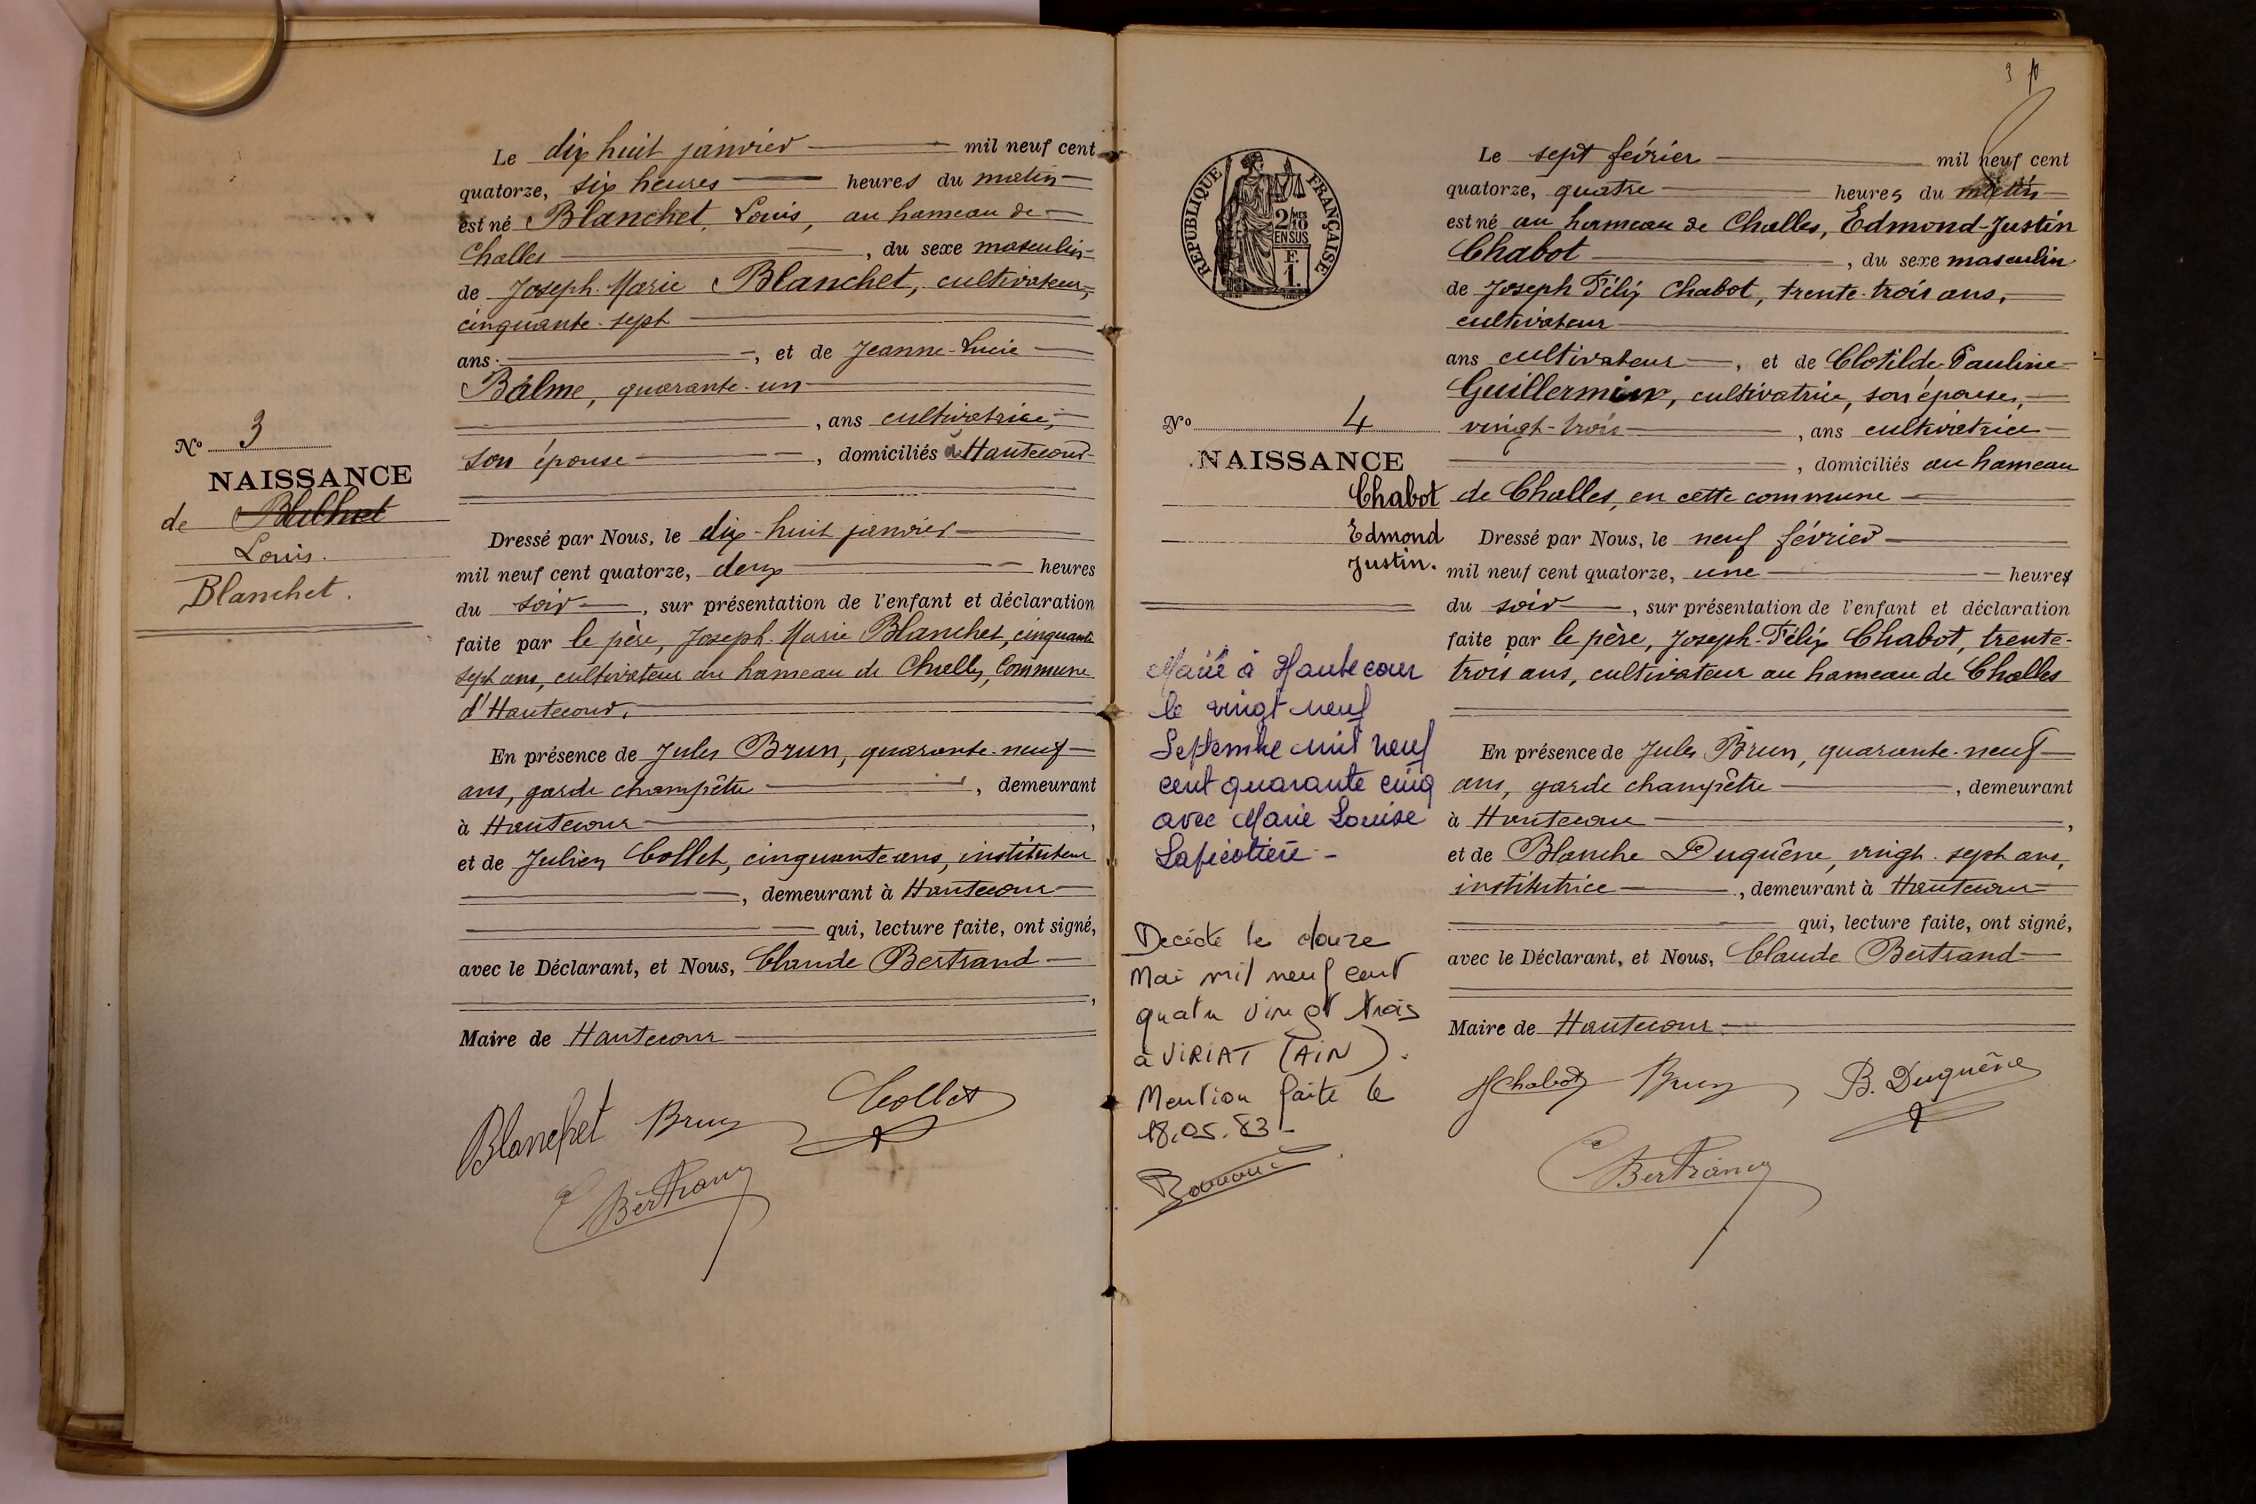 Le dix huit janvier mil neuf cent
quatorze, six heures heures du matin
est né Blanchet, Louis, au hameau de
Challes, du sexe masculin
de Joseph-Marie Blanchet, cultivateur,
cinquante-sept
ans, et de Jeanne-Lucie
Balme, quarante-un
, ans cultivatrice,
son épouse, domiciliés à Hautecour
N° 3
NAISSANCE
de
Louis.
Blanchet.
Dressé par Nous, le dix-huit janvier
mil neuf cent quatorze, deux heures
du soir, sur présentation de l'enfant et déclaration
faite par le père, Joseph-Marie Blanchet, cinquante
sept ans, cultivateur au hameau de Challes, Commune
d'Hautecour,
En présence de Jules Brun, quarante-neuf
ans, garde champêtre, demeurant
à Hautecour,
et de Julien Collet, cinquante ans, instituteur
, demeurant à Hautecour
qui, lecture faite, ont signé,
avec le Déclarant, et Nous, Claude Bertrand
,
Maire de Hautecour
Blanchet Brun Collet
C Bertrand
3
RÉPUBLIQUE FRANÇAISE
2/10 MES
EN SUS
F.
1.
Le sept février mil neuf cent
quatorze, quatre heures du matin
est né au hameau de Challes, Edmond-Justin
Chabot, du sexe masculin
de Joseph Félix Chabot, trente-trois ans,
cultivateur
ans cultivateur, et de Clotilde-Pauline
Guillermin, cultivatrice, son épouse,
vingt-trois, ans cultivatrice
, domiciliés au hameau
de Challes, en cette commune
N° 4
NAISSANCE
Chabot
Edmond
Justin.
Dressé par Nous, le neuf février
mil neuf cent quatorze, une heures
du soir, sur présentation de l'enfant et déclaration
faite par le père, Joseph-Félix Chabot, trente-
trois ans, cultivateur au hameau de Challes
Marié à Hautecour
le vingt neuf
Septembre mil neuf
cent quarante cinq
avec Marie Louise
En présence de Jules Brun, quarante-neuf
ans, garde champêtre, demeurant
à Hautecour,
et de Blanche Duquêne, vingt-sept ans,
institutrice, demeurant à Hautecour
qui, lecture faite, ont signé,
avec le Déclarant, et Nous, Claude Bertrand
Maire de Hautecour
Décédé le douze
Mai mil neuf cent
quatre vingt trois
à VIRIAT (AIN).
Mention faite le
18.05.83-
JChabot Brun B. Duquêne
C Bertrand